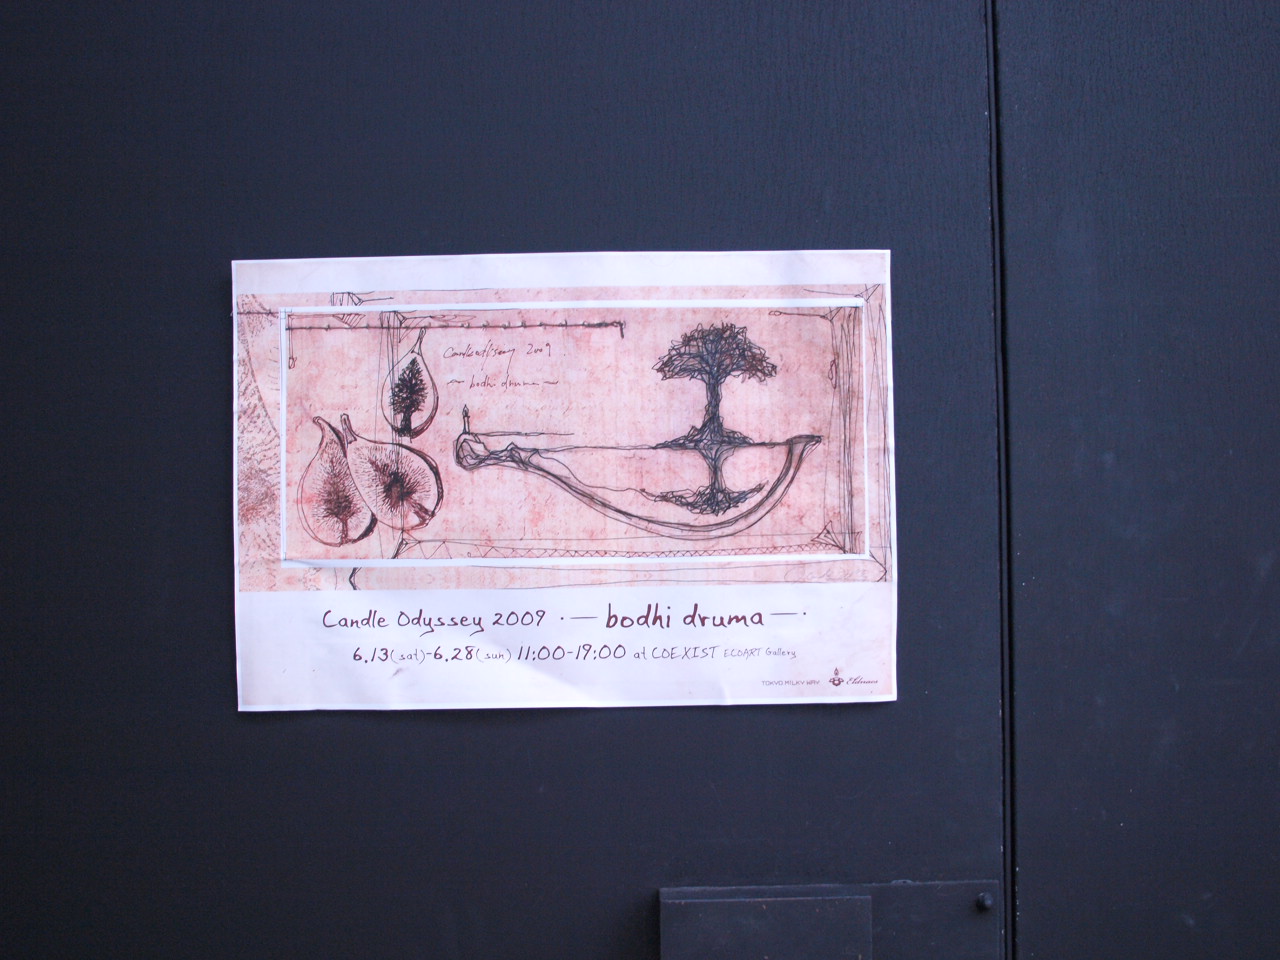 Candle odyssey 2009
~ bodhi druma ~
Candle Odyssey 2009 ·— bodhi druma —·
6.13(sat)-6.28(sun) 11:00-19:00 at COEXIST ECOART Gallery
TOKYO MILKY WAY